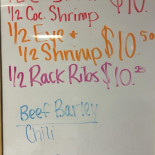 1/2 Coc Shrimp $10.
1/2 Eye +
1/2 Shrimp $10.50
1/2 Rack Ribs $10.25
Beef Barley
Chili